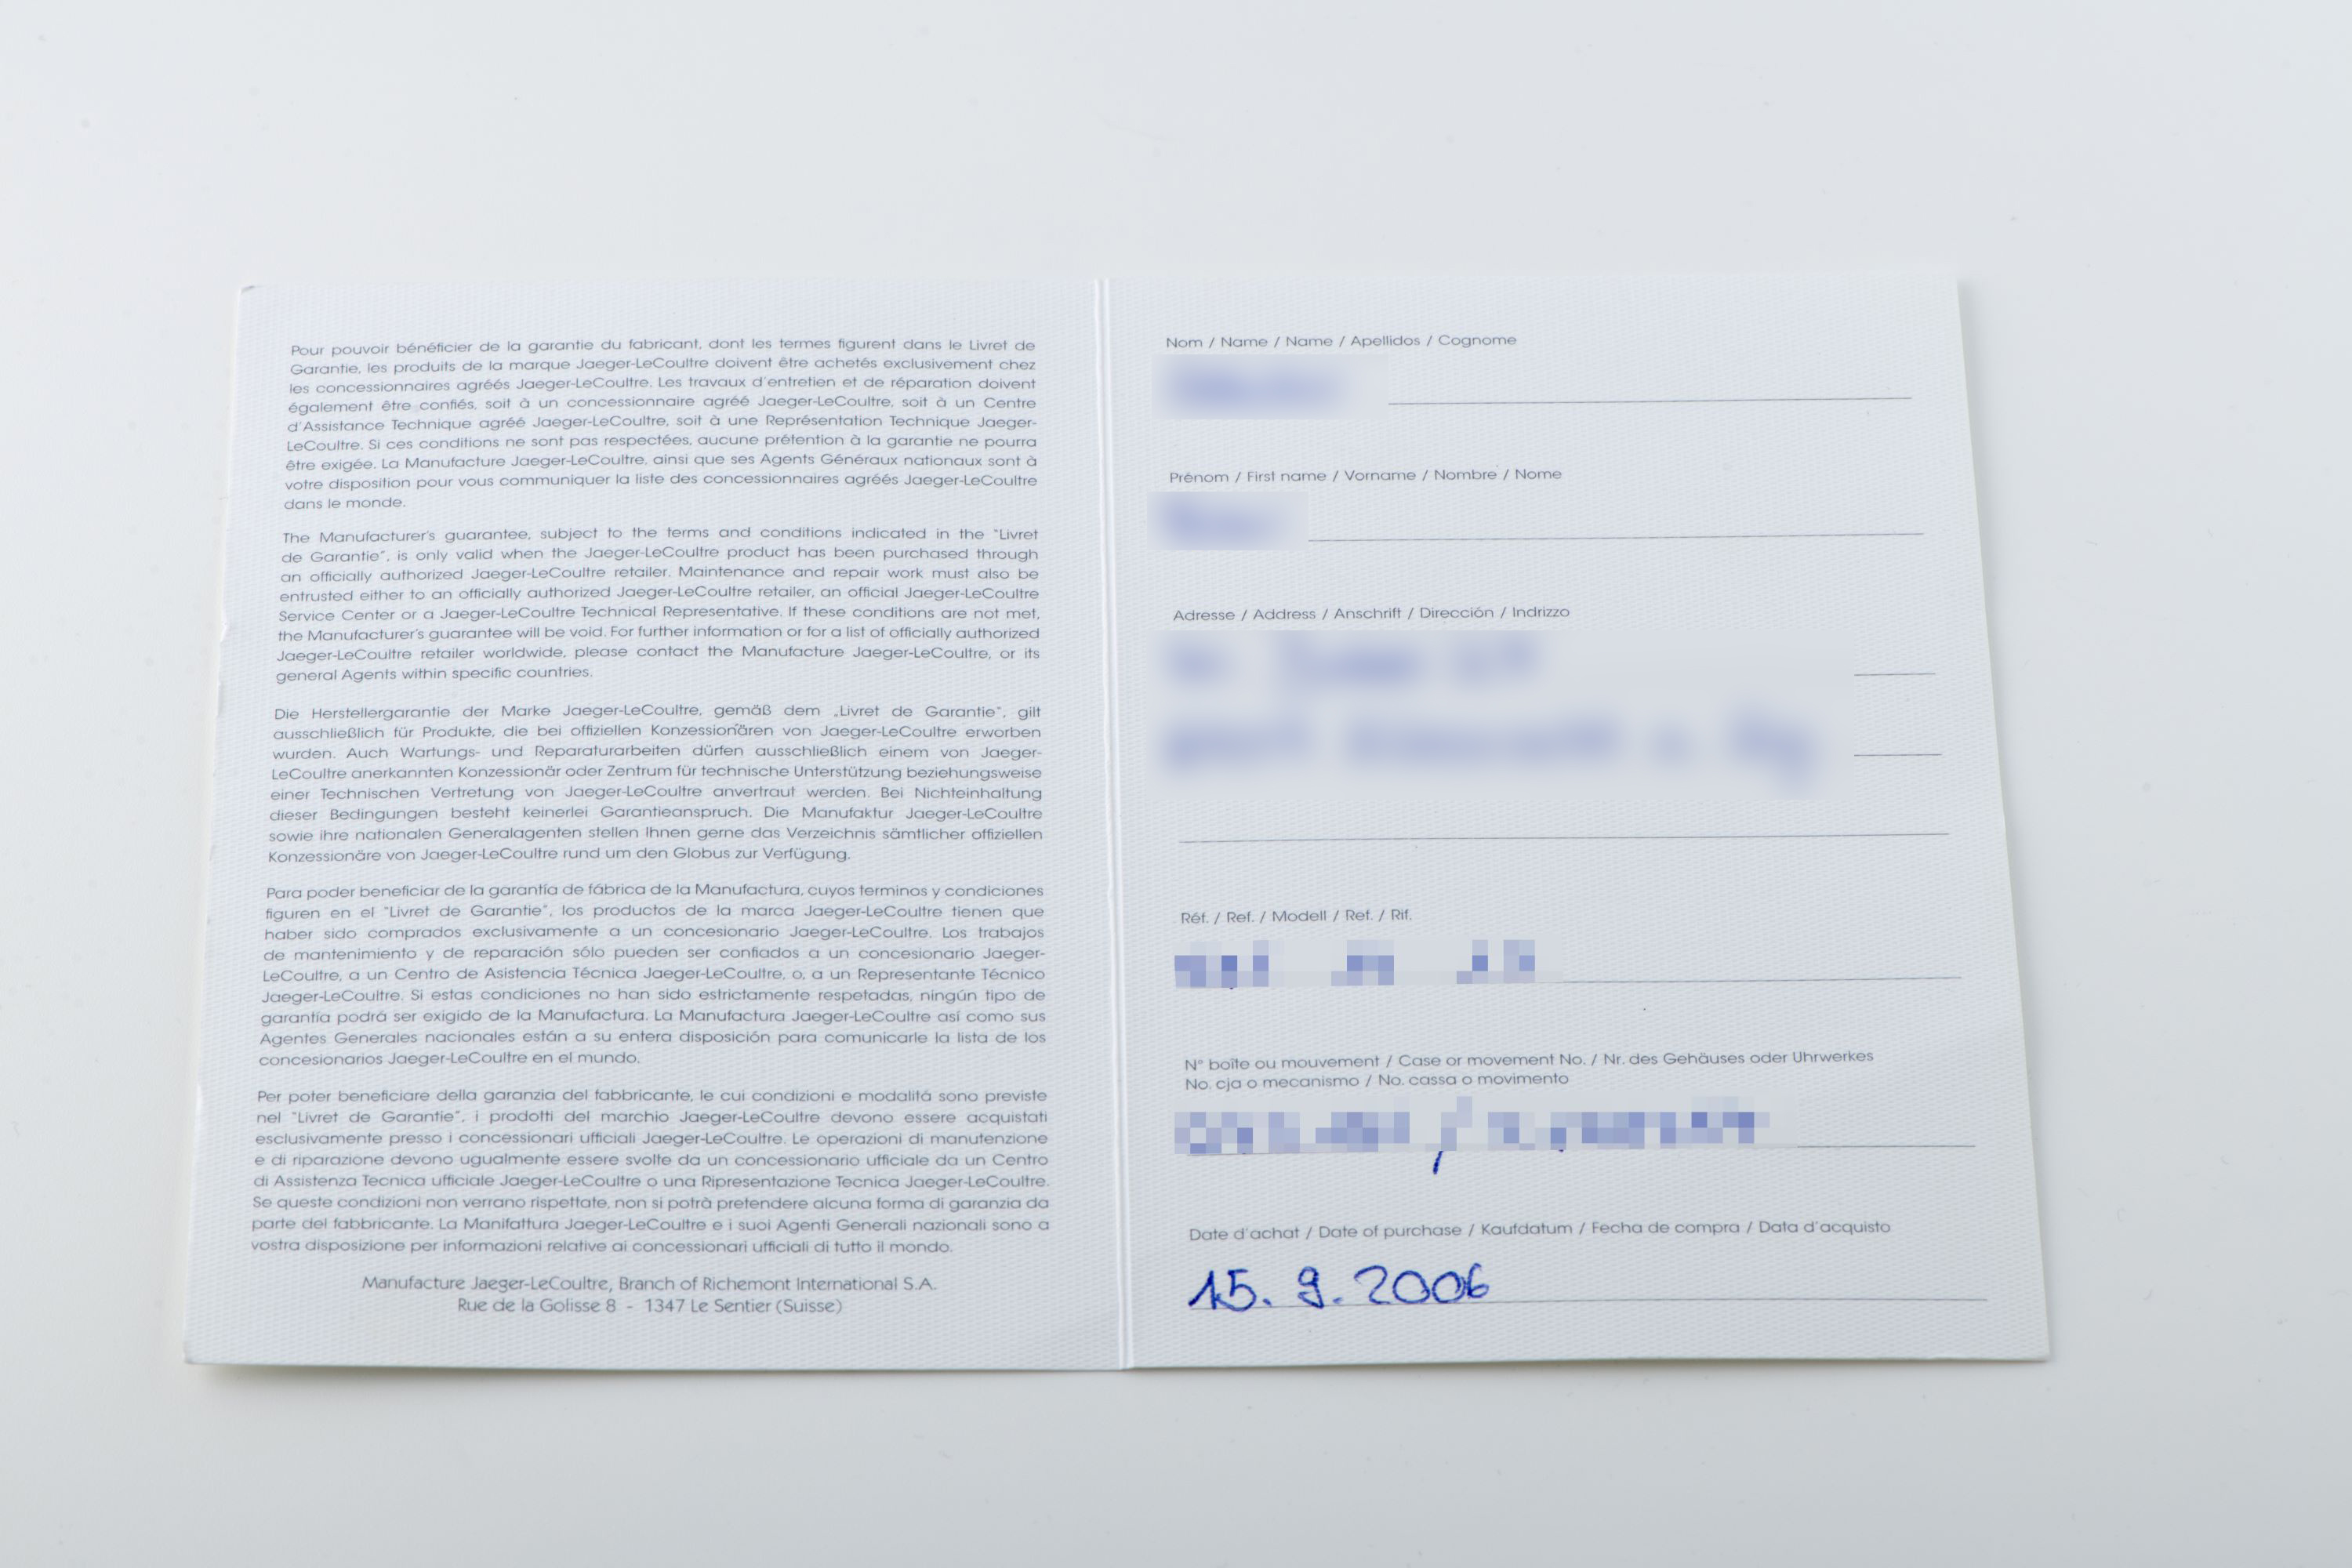 Pour pouvoir bénéficier de la garantie du fabricant, dont les termes figurent dans le Livret de
Garantie, les produits de la marque Jaeger-LeCoultre doivent être achetés exclusivement chez
les concessionnaires agréés Jaeger-LeCoultre. Les travaux d'entretien et de réparation doivent
également être confiés, soit à un concessionnaire agréé Jaeger-LeCoultre, soit à un Centre
d'Assistance Technique agréé Jaeger-LeCoultre, soit à une Représentation Technique Jaeger-
LeCoultre. Si ces conditions ne sont pas respectées, aucune prétention à la garantie ne pourra
être exigée. La Manufacture Jaeger-LeCoultre, ainsi que ses Agents Généraux nationaux sont à
votre disposition pour vous communiquer la liste des concessionnaires agréés Jaeger-LeCoultre
dans le monde.
The Manufacturer's guarantee, subject to the terms and conditions indicated in the "Livret
de Garantie", is only valid when the Jaeger-LeCoultre product has been purchased through
an officially authorized Jaeger-LeCoultre retailer. Maintenance and repair work must also be
entrusted either to an officially authorized Jaeger-LeCoultre retailer, an official Jaeger-LeCoultre
Service Center or a Jaeger-LeCoultre Technical Representative. If these conditions are not met,
the Manufacturer's guarantee will be void. For further information or for a list of officially authorized
Jaeger-LeCoultre retailer worldwide, please contact the Manufacture Jaeger-LeCoultre, or its
general Agents within specific countries.
Die Herstellergarantie der Marke Jaeger-LeCoultre, gemäß dem „Livret de Garantie", gilt
ausschließlich für Produkte, die bei offiziellen Konzessionären von Jaeger-LeCoultre erworben
wurden. Auch Wartungs- und Reparaturarbeiten dürfen ausschließlich einem von Jaeger-
LeCoultre anerkannten Konzessionär oder Zentrum für technische Unterstützung beziehungsweise
einer Technischen Vertretung von Jaeger-LeCoultre anvertraut werden. Bei Nichteinhaltung
dieser Bedingungen besteht keinerlei Garantieanspruch. Die Manufaktur Jaeger-LeCoultre
sowie ihre nationalen Generalagenten stellen Ihnen gerne das Verzeichnis sämtlicher offiziellen
Konzessionäre von Jaeger-LeCoultre rund um den Globus zur Verfügung.
Para poder beneficiar de la garantía de fábrica de la Manufactura, cuyos terminos y condiciones
figuren en el "Livret de Garantie", los productos de la marca Jaeger-LeCoultre tienen que
haber sido comprados exclusivamente a un concesionario Jaeger-LeCoultre. Los trabajos
de mantenimiento y de reparación sólo pueden ser confiados a un concesionario Jaeger-
LeCoultre, a un Centro de Asistencia Técnica Jaeger-LeCoultre, o, a un Representante Técnico
Jaeger-LeCoultre. Si estas condiciones no han sido estrictamente respetadas, ningún tipo de
garantía podrá ser exigido de la Manufactura. La Manufactura Jaeger-LeCoultre así como sus
Agentes Generales nacionales están a su entera disposición para comunicarle la lista de los
concesionarios Jaeger-LeCoultre en el mundo.
Per poter beneficiare della garanzia del fabbricante, le cui condizioni e modalitá sono previste
nel "Livret de Garantie", i prodotti del marchio Jaeger-LeCoultre devono essere acquistati
esclusivamente presso i concessionari ufficiali Jaeger-LeCoultre. Le operazioni di manutenzione
e di riparazione devono ugualmente essere svolte da un concessionario ufficiale da un Centro
di Assistenza Tecnica ufficiale Jaeger-LeCoultre o una Ripresentazione Tecnica Jaeger-LeCoultre.
Se queste condizioni non verrano rispettate, non si potrà pretendere alcuna forma di garanzia da
parte del fabbricante. La Manifattura Jaeger-LeCoultre e i suoi Agenti Generali nazionali sono a
vostra disposizione per informazioni relative ai concessionari ufficiali di tutto il mondo.
Manufacture Jaeger-LeCoultre, Branch of Richemont International S.A.
Rue de la Golisse 8 - 1347 Le Sentier (Suisse)
Nom / Name / Name / Apellidos / Cognome
Prénom / First name / Vorname / Nombre / Nome
Adresse / Address / Anschrift / Dirección / Indrizzo
Réf. / Ref. / Modell / Ref. / Rif.
N° boîte ou mouvement / Case or movement No. / Nr. des Gehäuses oder Uhrwerkes
No. cja o mecanismo / No. cassa o movimento
Date d'achat / Date of purchase / Kaufdatum / Fecha de compra / Data d'acquisto
15. 9. 2006